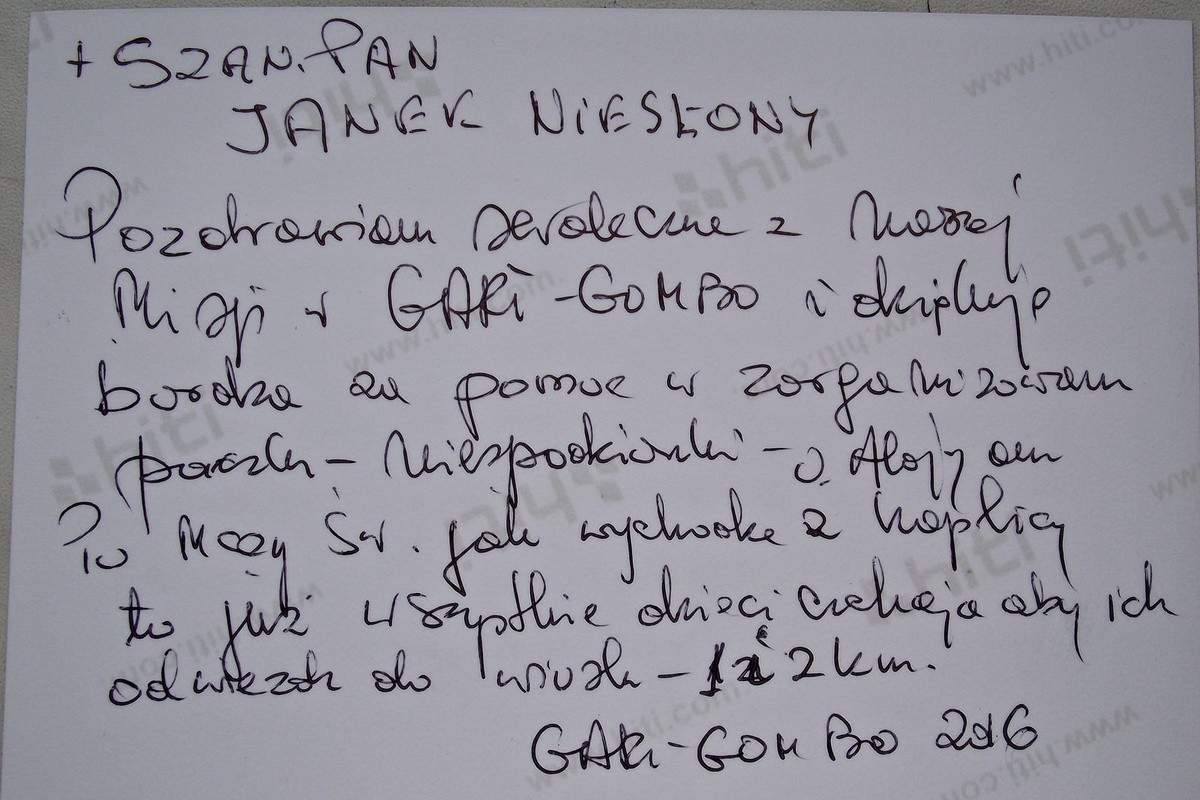 + SZAN. PAN
JANEK NIESŁONY
Pozdrawiam serdecznie z naszej
Misji w GARI-GOMBO i dziękuję
bardzo za pomoc w zorganizowaniu
paczki - niespodzianki -
Po Mszy Św. jak wychodzę z kaplicy
to już wszystkie dzieci czekają aby ich
odwieźć do wioski - 1 i 2 km.
GARI-GOMBO 2016
www.hiti.com
hiti